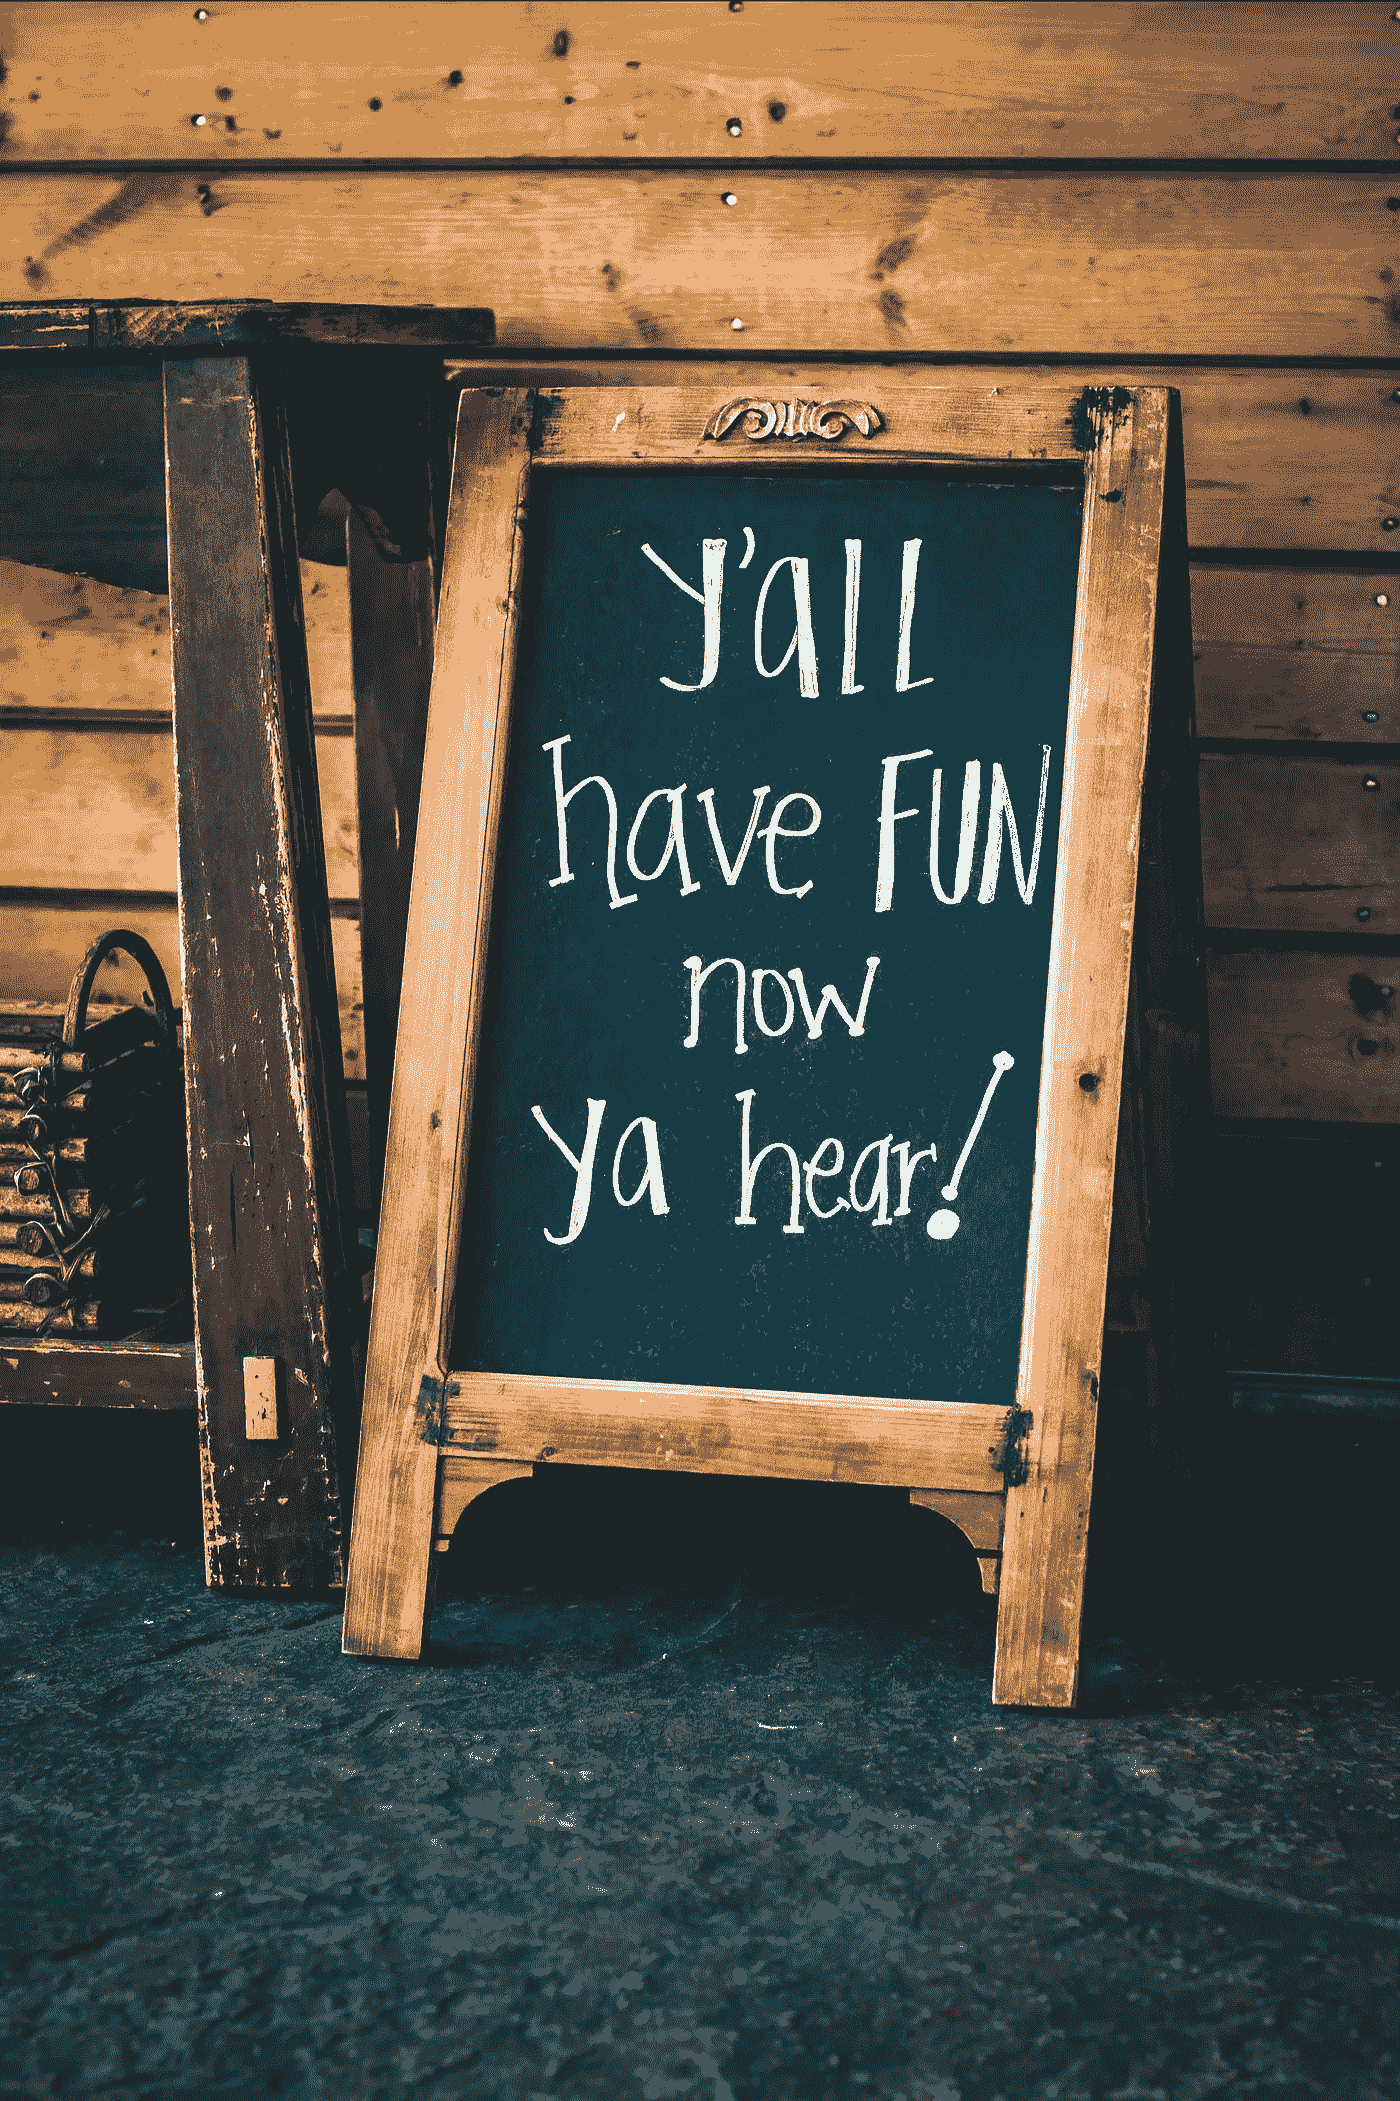 y'all
have FUN
now
ya hear!